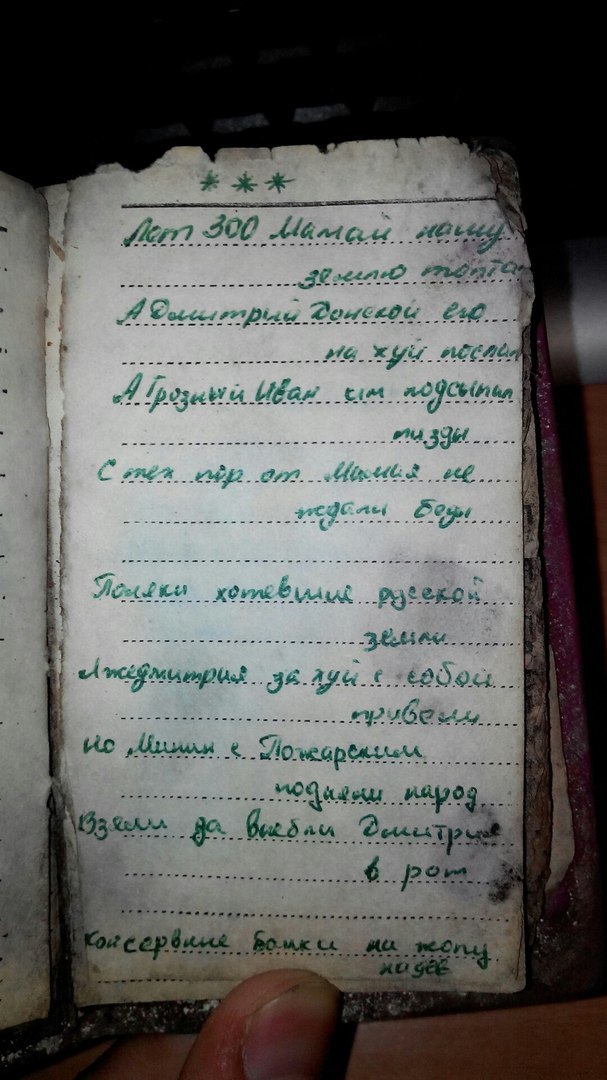 ***
Лет 300 Мамай нашу
землю топтал
А Дмитрий Донской его
на хуй послал
А Грозный Иван им подсыпил
пизды
С тех пор от Мамая не
ждали беды
Поляки хотевшие русской
земли
Лжедмитрия за хуй с собой
привели
Но Минин с Пожарским
подняли народ
Взяли да выебли Дмитрия
в рот
Консервные банки на жопу
надев